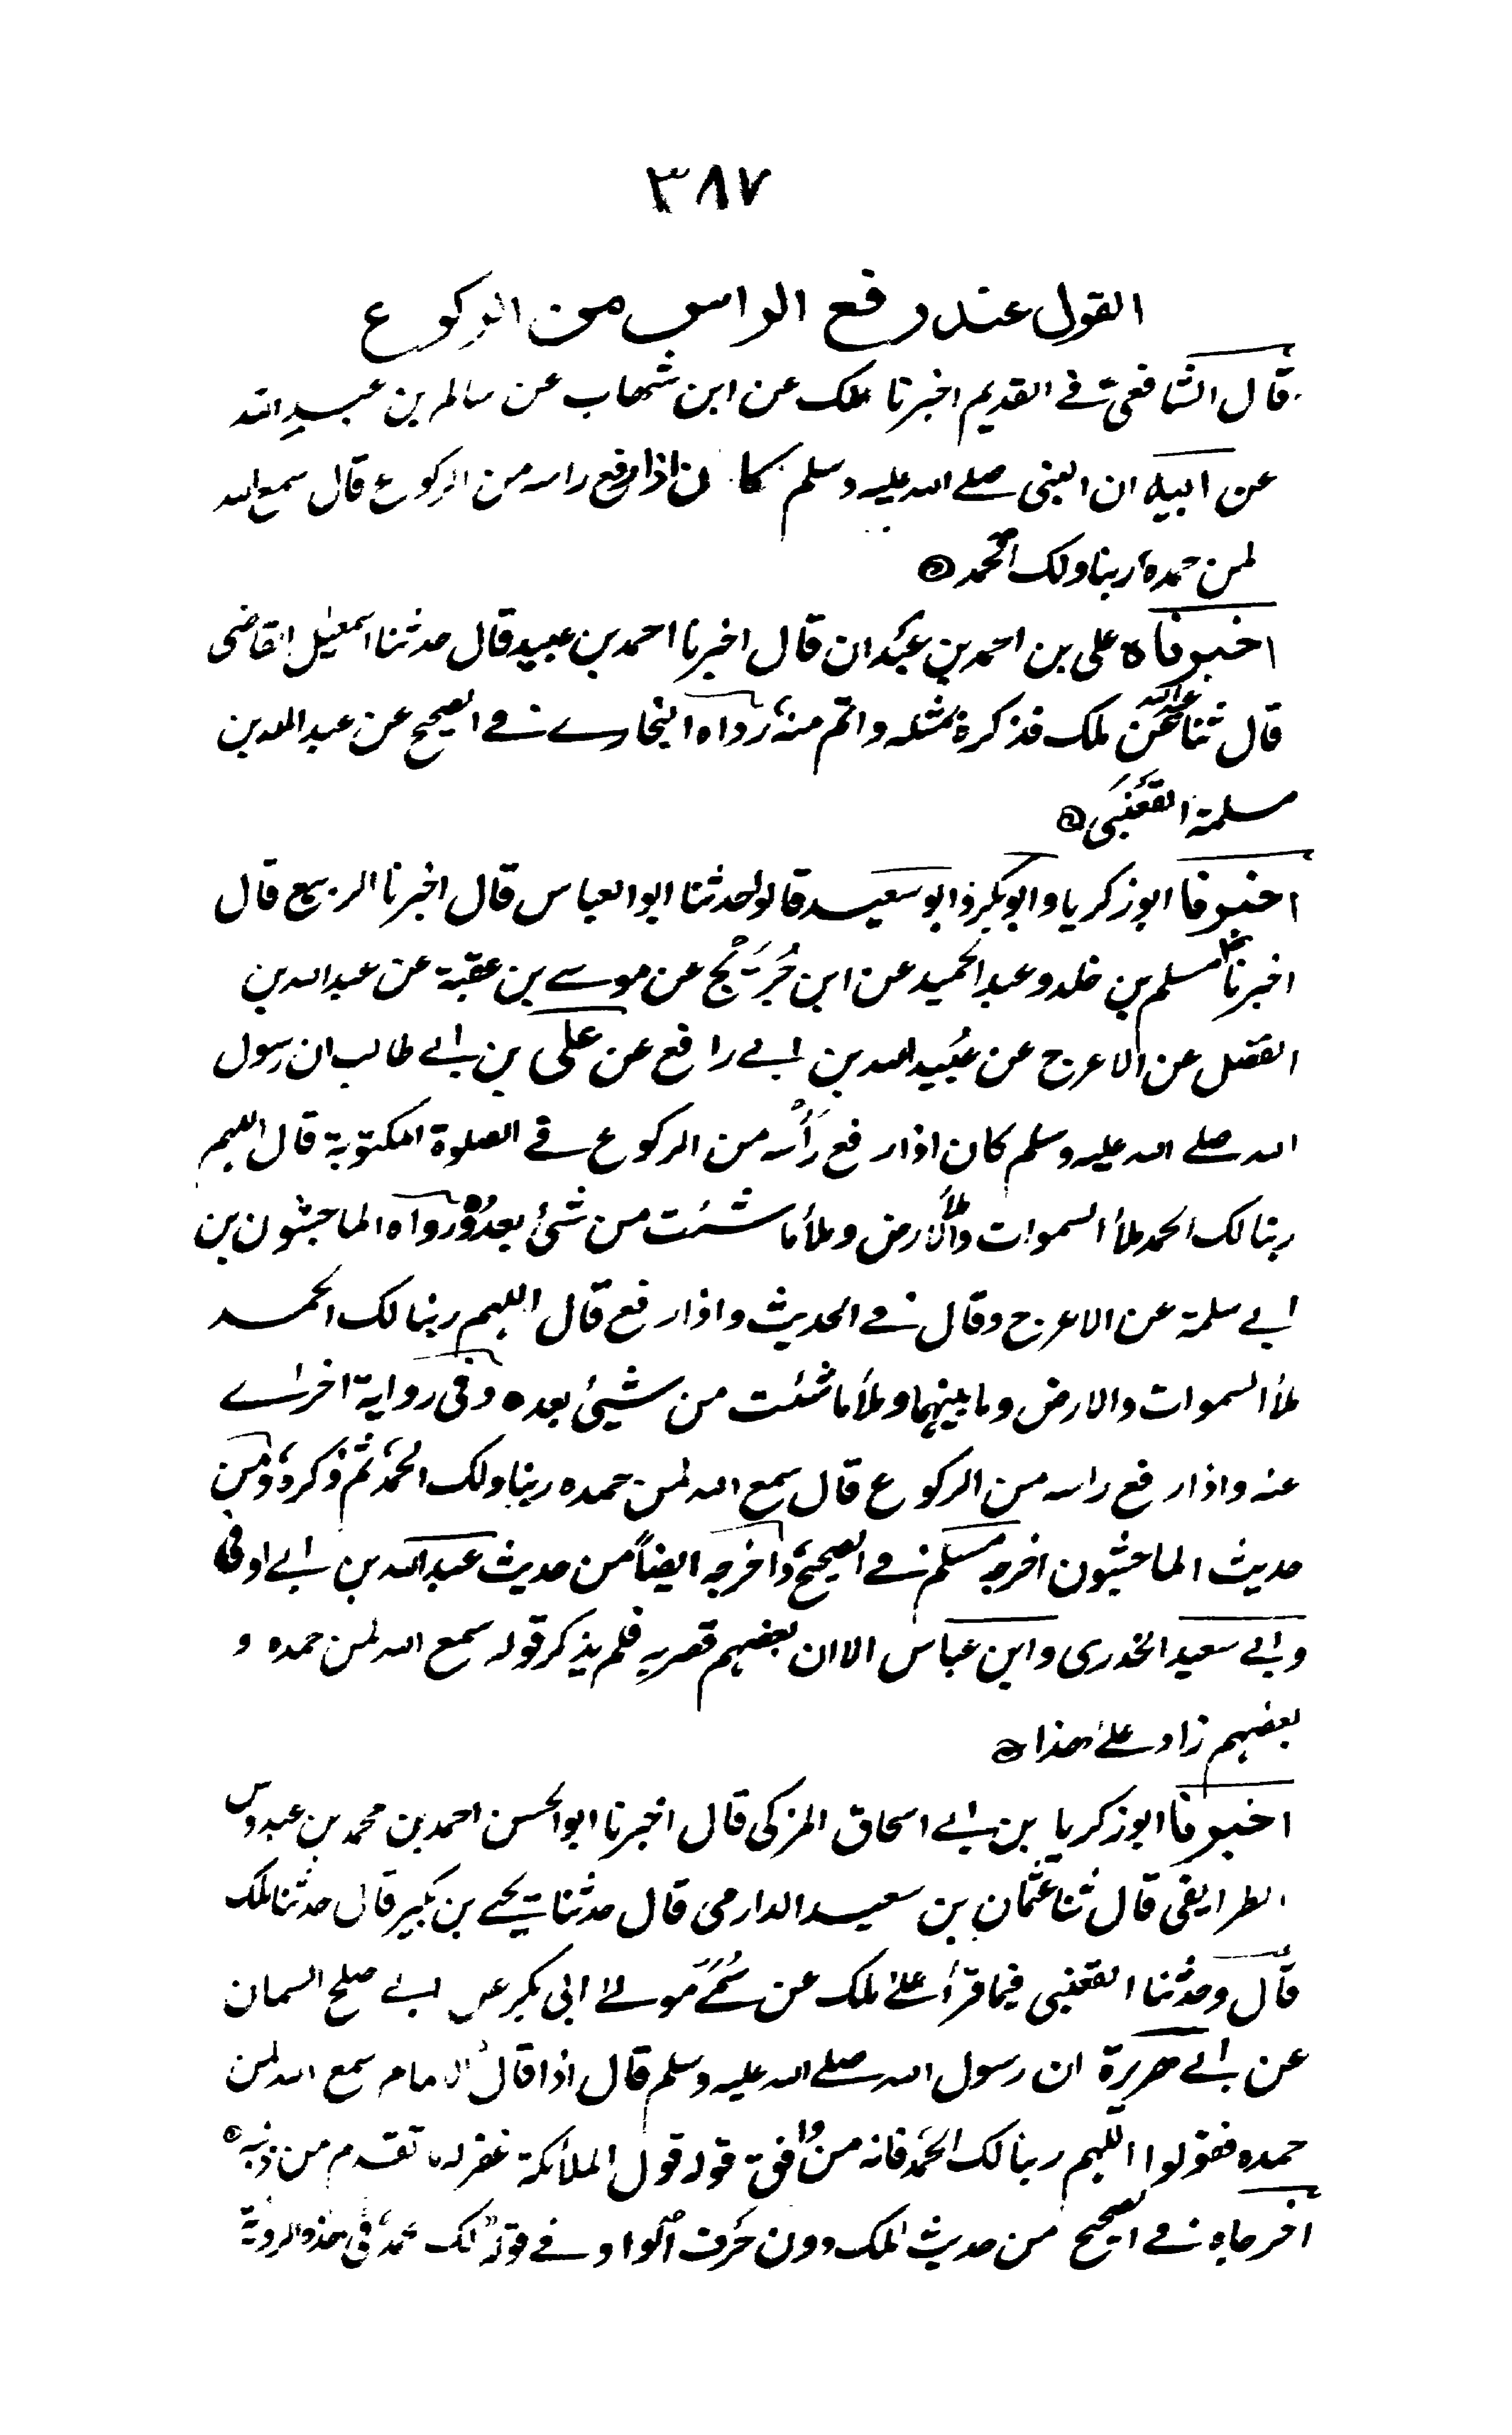 ٣٨٧
القول عند رفع الراس من الركوع
قال الشافعى فے القديم اخبرنا ملك عن ابن شهاب عن سالم بن عبد الله
عن ابيه ان النبى صلے الله عليه وسلم كان اذا رفع راسه من الركوع قال سمع الله
لمن حمده ربنا ولك الحمد
اخبرناه على بن احمد بن عبدان قال اخبرنا احمد بن عبيد قال حدثنا اسمعيل القاضى
قال ثنا عبد الله عن ملك فذكره بمثله واتم منه رواه البخارے فے الصحيح عن عبد الله بن
مسلمة القعنبى
اخبرنا ابو زكريا وابو بكر وابو سعيد قالوا حدثنا ابو العباس قال اخبرنا الربيع قال
اخبرنا مسلم بن خلد وعبد الحميد عن ابن جُرَيْج عن موسے بن عقبة عن عبد الله بن
الفضل عن الاعرج عن عبيد الله بن ابے رافع عن على بن ابے طالب ان رسول
الله صلے الله عليه وسلم كان اذا رفع رَأْسه من الركوع فے الصلوة المكتوبة قال اللهم
ربنا لك الحمد ملأ السموات وملأ الارض وملأ ما شئت من شئ بعد ورواه الماجشون بن
ابے سلمة عن الاعرج وقال فے الحديث واذا رفع قال اللهم ربنا لك الحمد
ملأ السموات والارض وما بينهما وملأ ما شئت من شيئ بعده وفى رواية اخراے
عنه واذا رفع راسه من الركوع قال سمع الله لمن حمده ربنا ولك الحمد ثم ذكره ومن
حديث الماجشون اخرجه مسلم فے الصحيح واخرجه ايضاً من حديث عبد الله بن ابے اوفى
وابے سعيد الخدرى وابن عباس الا ان بعضهم قصر به فلم يذكر قوله سمع الله لمن حمده و
بعضهم زاد علے هذا
اخبرنا ابو زكريا بن ابے اسحاق المزكى قال اخبرنا ابو الحسن احمد بن محمد بن عبدوس
الطرايفى قال ثنا عثمان بن سعيد الدارمى قال حدثنا يحيے بن بكير قال حدثنا ملك
قال وحدثنا القعنبى فيما قرأ علے ملك عن سُمَے مولے ابى بكر عن ابے صلح السمان
عن ابے هريرة ان رسول الله صلے الله عليه وسلم قال اذا قال الامام سمع الله لمن
حمده فقولوا اللهم ربنا لك الحمد فانه من وافق قوله قول الملائكة غفر له ما تقدم من ذنبه
اخرجاه فے الصحيح من حديث ملك دون حرف الواو فے قوله لك الحمد فى هذه الرواية